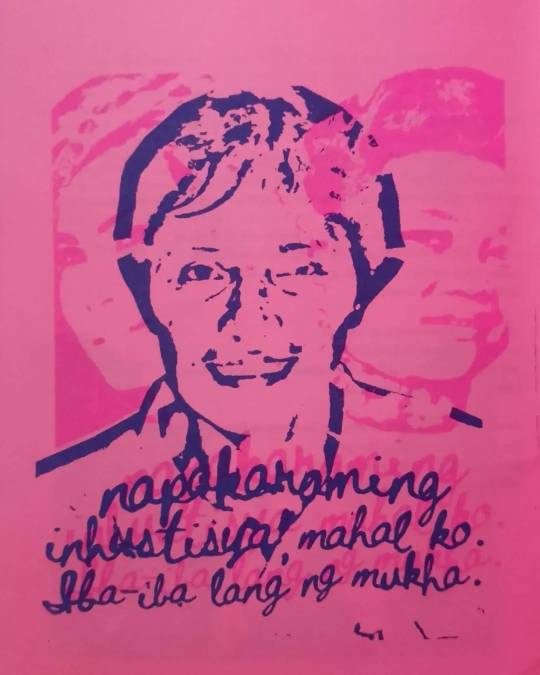 napakaraming
inhustisya, mahal ko.
Iba-iba lang ng mukha.